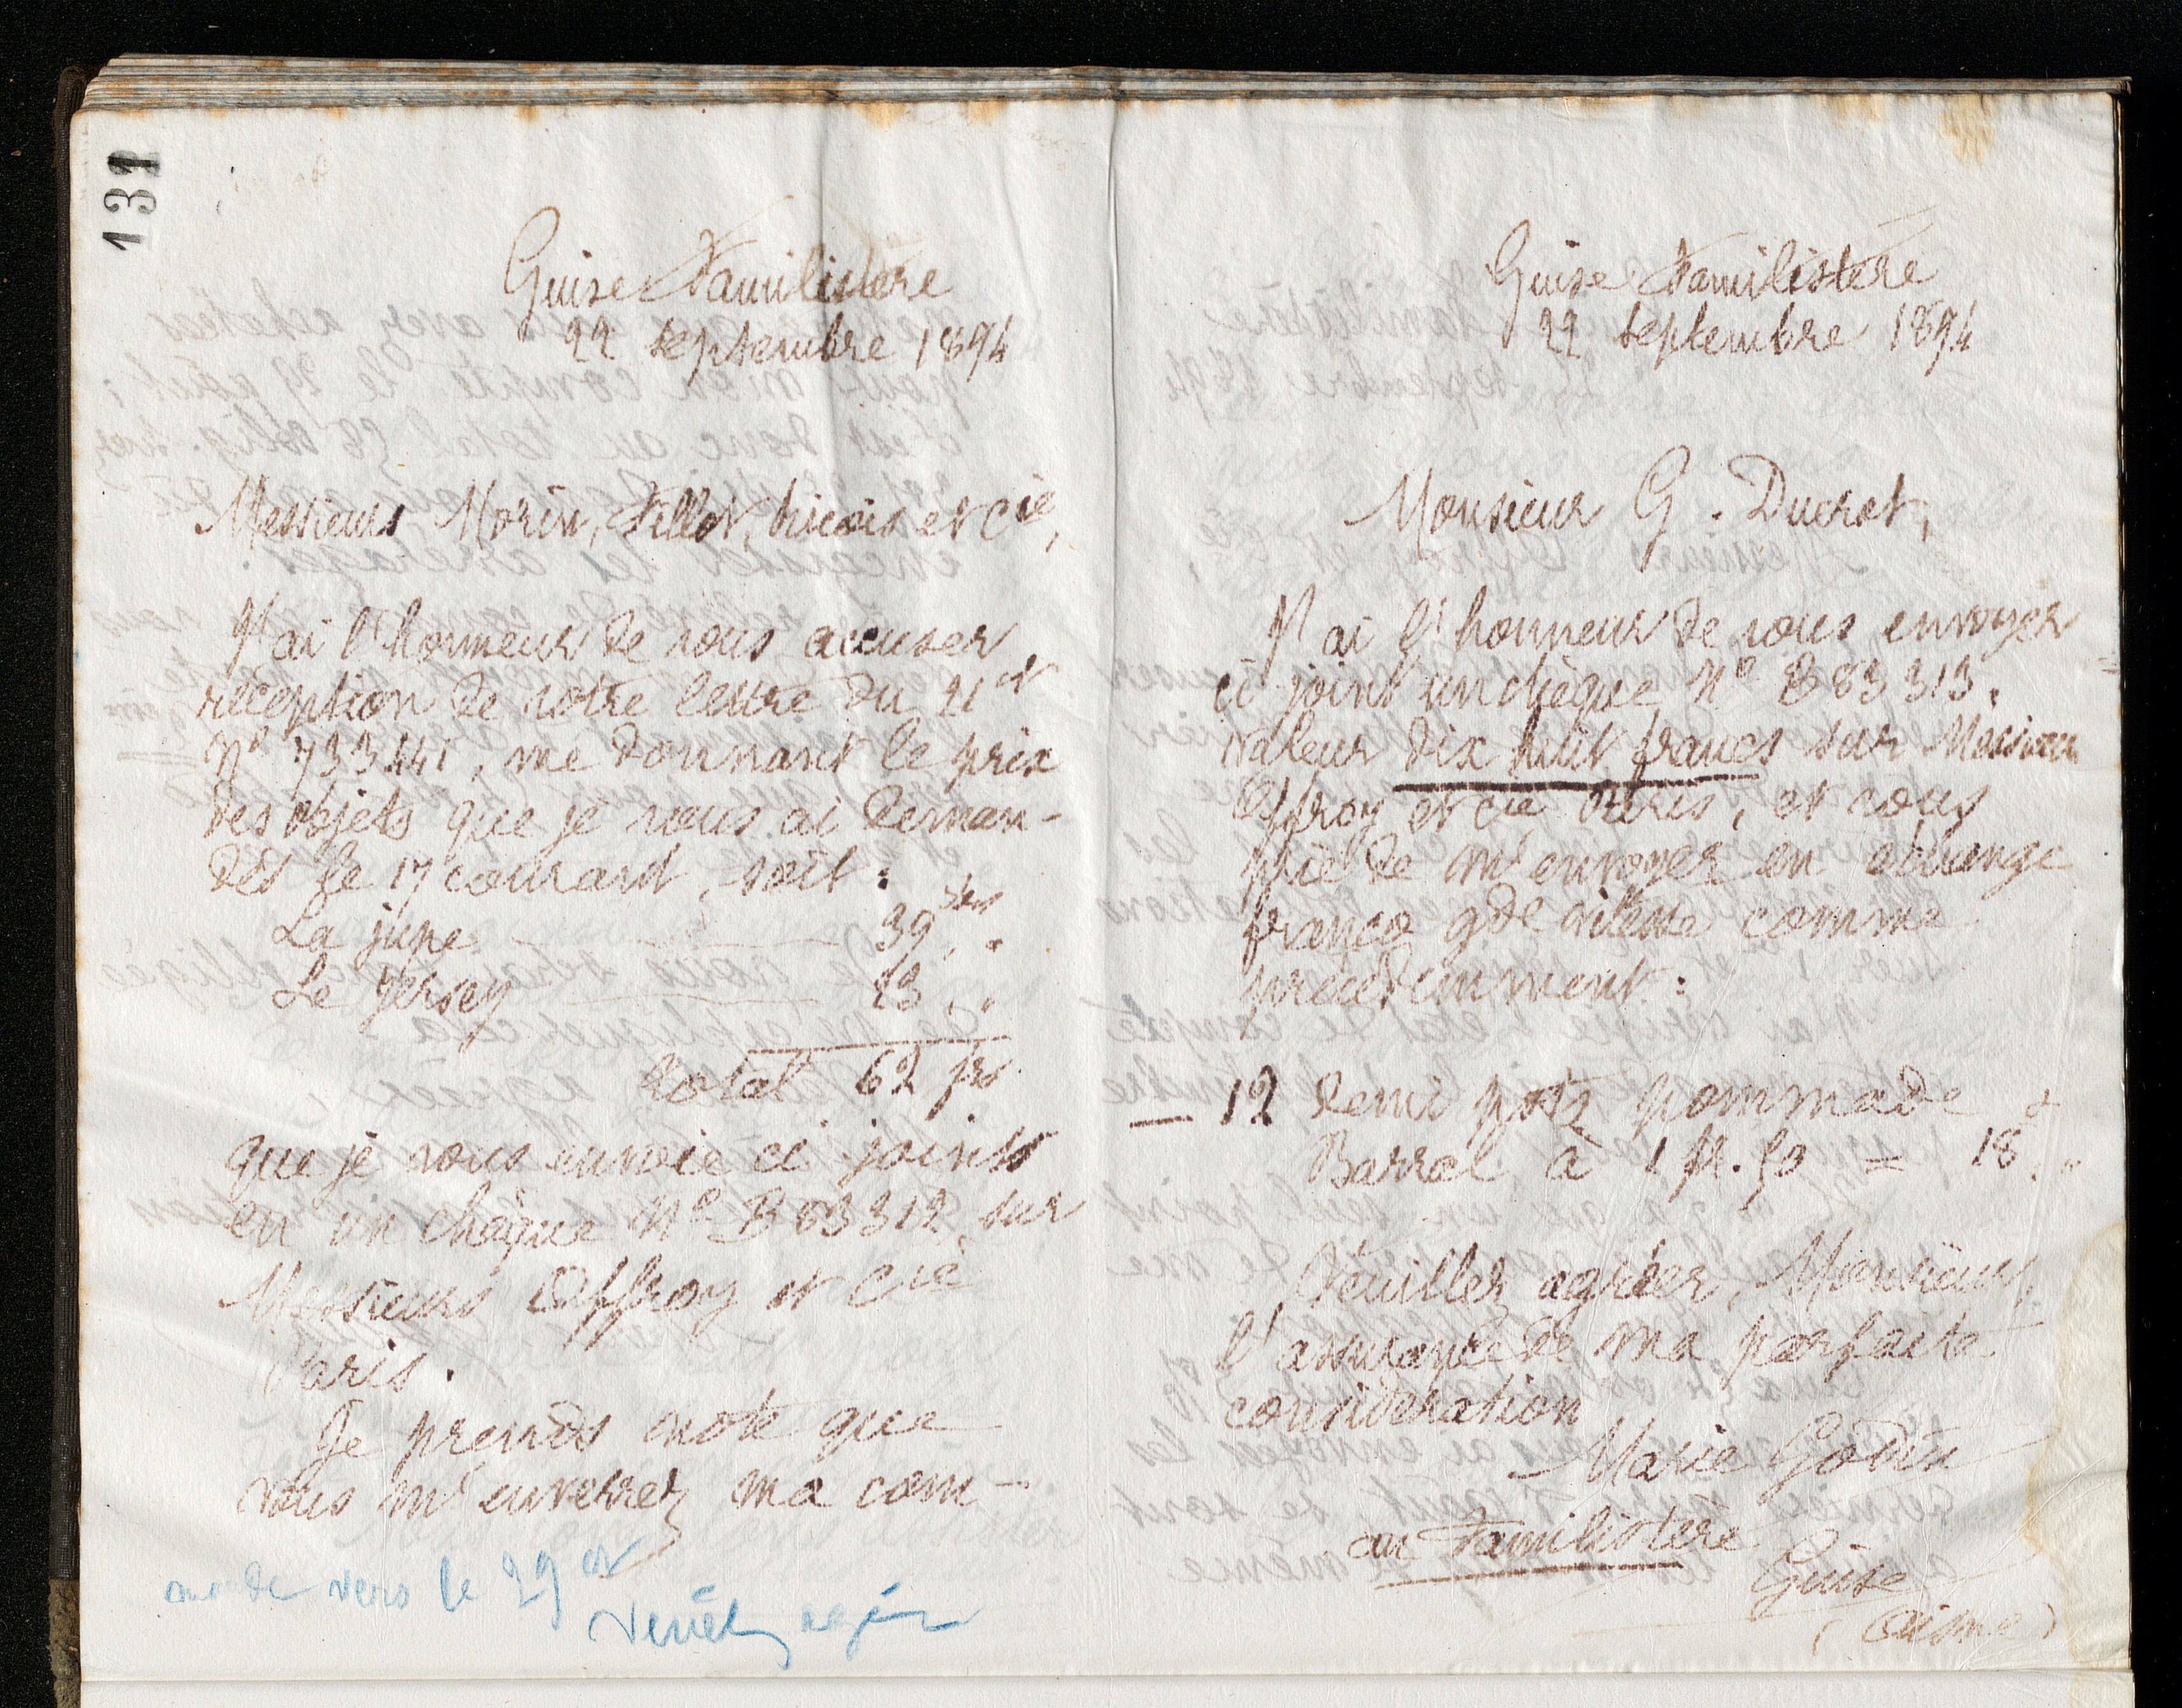 131
Guise Familistère
22 septembre 1894
Messieurs Morin, Fillot, Ricois et Cie,
J'ai l'honneur de vous accuser
réception de votre lettre du 21 ct
No 733441, me donnant le prix
des objets que je vous ai deman-
dés le 17 courant, soit :
La jupe 39 "
Le Jersey 23 "
total 62 frs
que je vous envoie ci-joints
en un chèque No B 83312 sur
Messieurs Offroy et Cie
Paris.
Je prends note que
vous m'enverrez ma com-
mande vers le 29 ct
Veuillez agréer
Guise Familistère
22 septembre 1894
Monsieur G. Ducrot,
J'ai l'honneur de vous envoyer
ci-joint un chèque No B 83313.
valeur dix huit francs sur Messieurs
Offroy et Cie Paris, et vous
prie de m'envoyer en échange
franco gde vitesse comme
précédemment :
— 12 demi pots pommade
Barral à 1 fr. 50 = 18 "
Veuillez agréer, Monsieur,
l'assurance de ma parfaite
considération
Marie Godin
au Familistère
Guise
(Aisne)